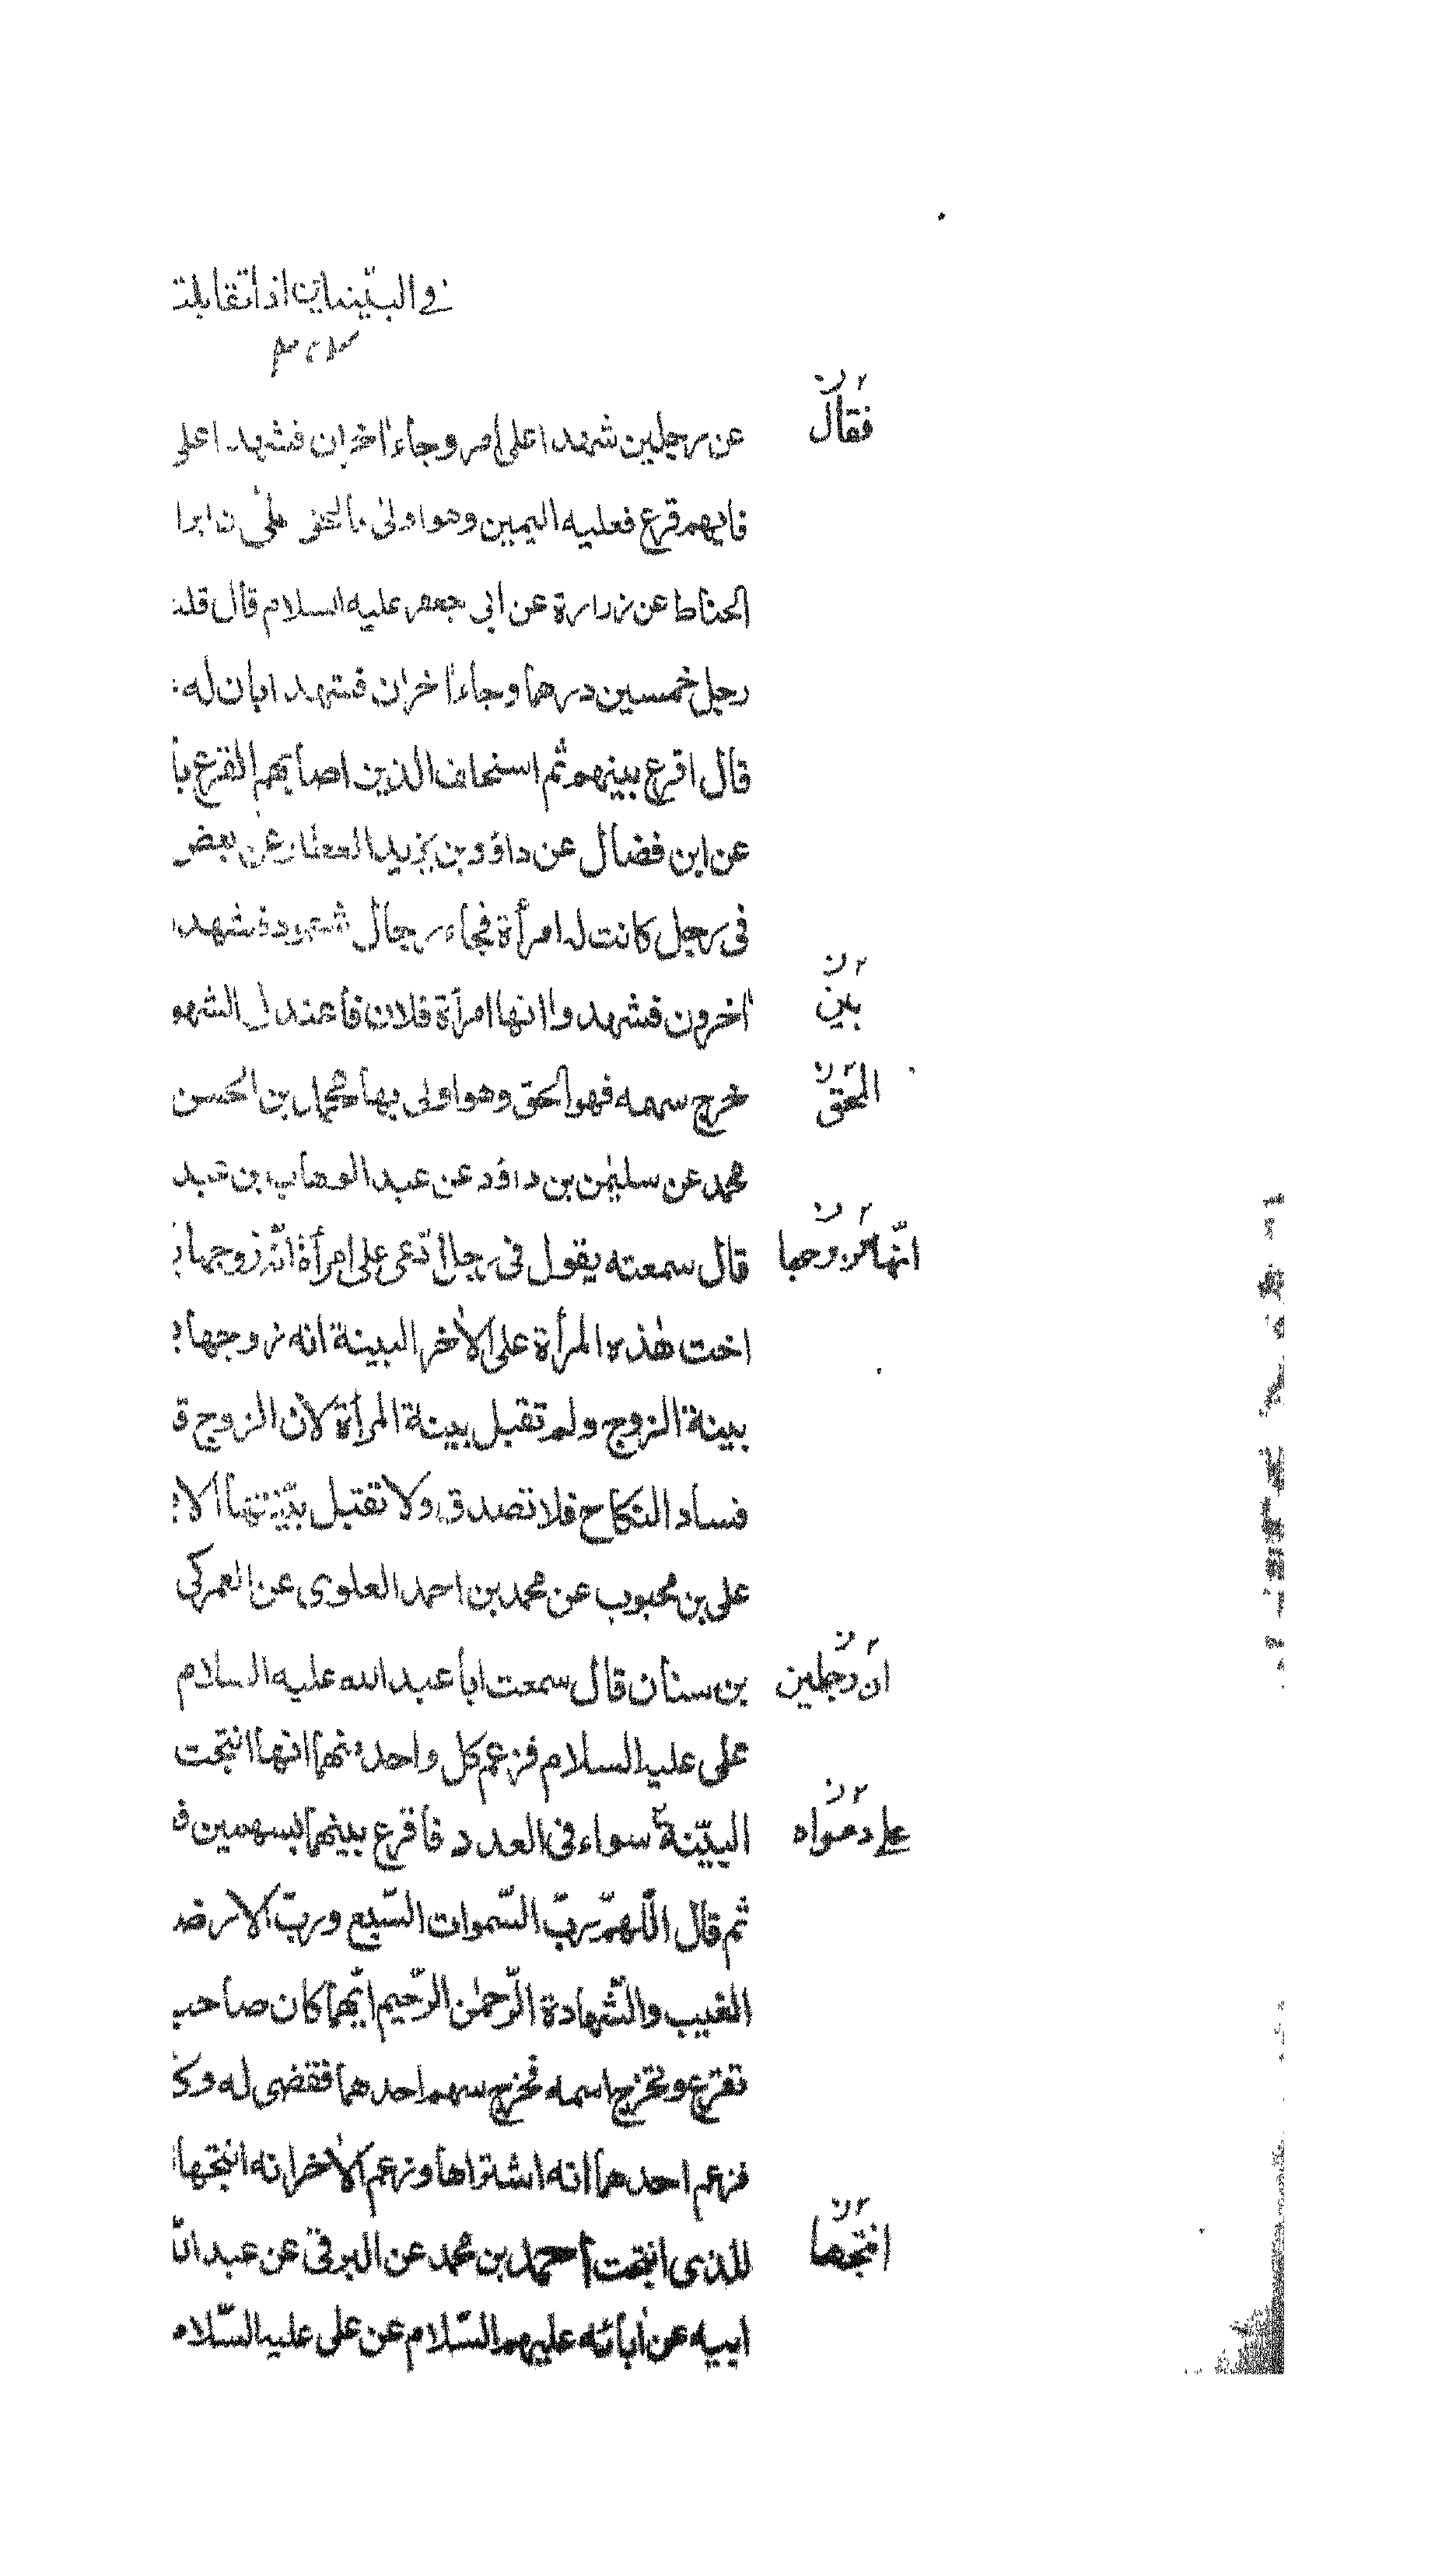 في البينتين اذا تقابلت
فقال ٢ ن
عن رجلين شهدا على امر وجاء اخران فشهدا على
فايهم قرع فعليه اليمين وهو اولى بالحق
الحناط عن زرارة عن ابى جعفر عليه السلام قال قلت
رجل خمسين درهما وجاء اخران فشهدا بان له
قال اقرع بينهم ثم استحلف الذين اصابهم القرع با
عن ابن فضال عن داؤد بن يزيد العطار عن بعض
فى رجل كانت له امرأة فجاء رجال شهود فشهد
بين ٢ ن
اخرون فشهدوا انها امرأة فلان فاعتدل الشهو
المحق ٢ ن
خرج سهمه فهو المحق وهو اولى بها محمد بن الحسن
محمد عن سليمن بن داؤد عن عبد الوهاب بن عبد
٢ ن
قال سمعته يقول فى رجل ادّعى على امرأة انّه زوجها
اخت هذه المرأة على الاخر البينة انه زوجها
بينة الزوج ولم تقبل بينة المرأة لان الزوج ق
فساد النكاح فلا تصدق ولا تقبل بيّنتها الا
على بن محبوب عن محمد بن احمد العلوى عن العمركى
انّ رجلين ٢ ن
بن سنان قال سمعت ابا عبد الله عليه السلام
على عليه السلام فزعم كل واحد منهما انها انتجت
على دعواه ٢ ن
البيّنة سواء فى العدد فاقرع بينهما بسهمين ف
ثم قال اللّهمّ ربّ السّموات السّبع وربّ الارض
الغيب والشّهادة الرّحمن الرّحيم ايّهما كان صاحب
تقرع وتخرج اسمه فخرج سهم احدهما فقضى له وك
فزعم احدهما انه اشتراها وزعم الاخر انه انتجها
انتجها ٢ ن
للذى انتجت احمد بن محمد عن البرقى عن عبد ال
ابيه عن ابائه عليهم السّلام عن على عليه السّلام